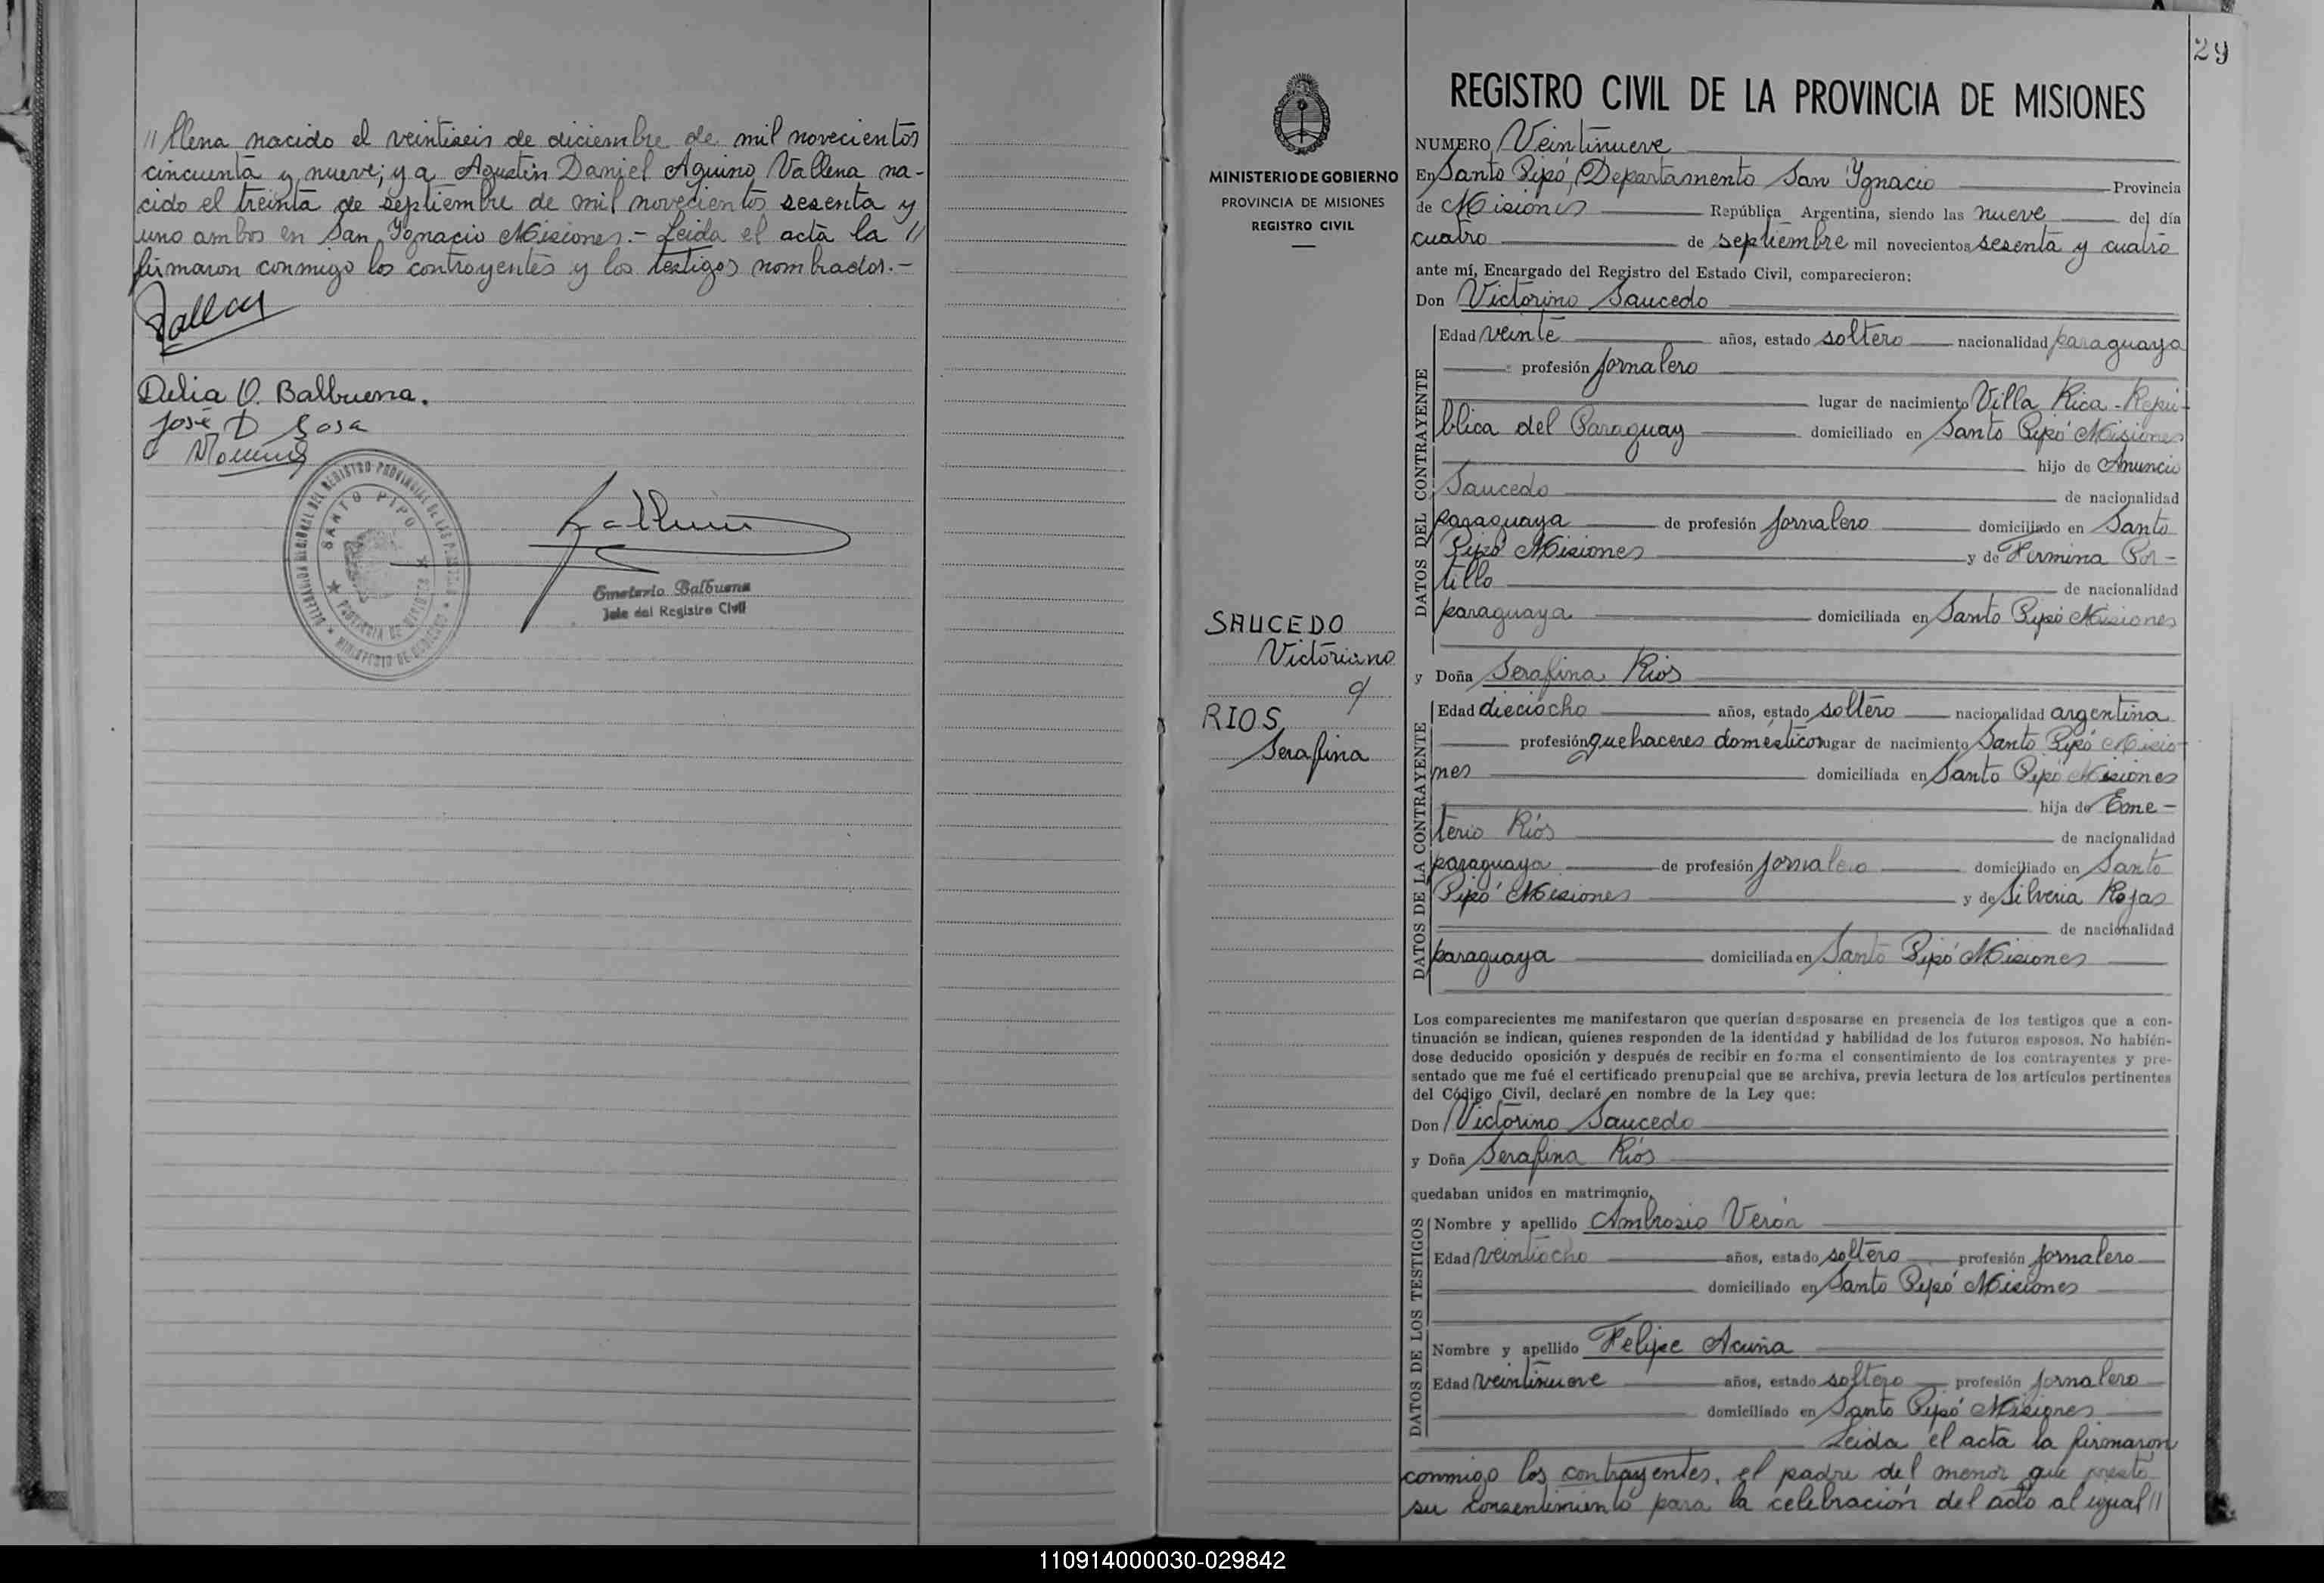 // llena nacido el veintiseis de diciembre de mil novecientos
cincuenta y nueve; y a Agustin Daniel Aquino Vallena na-
cido el treinta de septiembre de mil novecientos sesenta y
uno ambos en San Ygnacio Misiones.- Leida el acta la //
firmaron conmigo los contrayentes y los testigos nombrados.-
Delia O. Balbuena.
José D Sosa
SANTO PIPO
Emeterio Balbuena
Jefe del Registro Civil
29
MINISTERIO DE GOBIERNO
PROVINCIA DE MISIONES
REGISTRO CIVIL
SAUCEDO
Victoriano
c/
RIOS
Serafina
REGISTRO CIVIL DE LA PROVINCIA DE MISIONES
NUMERO Veintinueve
En Santo Pipó, Departamento San Ygnacio Provincia
de Misiones República Argentina, siendo las nueve del día
cuatro de septiembre mil novecientos sesenta y cuatro
ante mí, Encargado del Registro del Estado Civil, comparecieron:
Don Victorino Saucedo
DATOS DEL CONTRAYENTE
Edad veinte años, estado soltero nacionalidad paraguaya
profesión jornalero
lugar de nacimiento Villa Rica - Repú-
blica del Paraguay domiciliado en Santo Pipó Misiones
hijo de Anuncio
Saucedo de nacionalidad
paraguaya de profesión jornalero domiciliado en Santo
Pipó Misiones y de Hermina Por-
tillo de nacionalidad
paraguaya domiciliada en Santo Pipó Misiones
y Doña Serafina Rios
DATOS DE LA CONTRAYENTE
Edad dieciocho años, estado soltero nacionalidad argentina
profesión quehaceres domésticos lugar de nacimiento Santo Pipó Misio-
nes domiciliada en Santo Pipó Misiones
hija de Eme-
terio Ríos de nacionalidad
paraguaya de profesión jornalero domiciliado en Santo
Pipó Misiones y de Silveria Rojas
de nacionalidad
paraguaya domiciliada en Santo Pipó Misiones
Los comparecientes me manifestaron que querían desposarse en presencia de los testigos que a con-
tinuación se indican, quienes responden de la identidad y habilidad de los futuros esposos. No habién-
dose deducido oposición y después de recibir en forma el consentimiento de los contrayentes y pre-
sentado que me fué el certificado prenupcial que se archiva, previa lectura de los artículos pertinentes
del Código Civil, declaré en nombre de la Ley que:
Don Victorino Saucedo
y Doña Serafina Ríos
quedaban unidos en matrimonio.
DATOS DE LOS TESTIGOS
Nombre y apellido Ambrosio Verón
Edad veintiocho años, estado soltero profesión jornalero
domiciliado en Santo Pipó Misiones
Nombre y apellido Felipe Acuña
Edad veintinueve años, estado soltero profesión jornalero
domiciliado en Santo Pipó Misiones
Leida el acta la firmaron
conmigo los contrayentes, el padre del menor que presto
su consentimiento para la celebración del acto al igual //
110914000030-029842